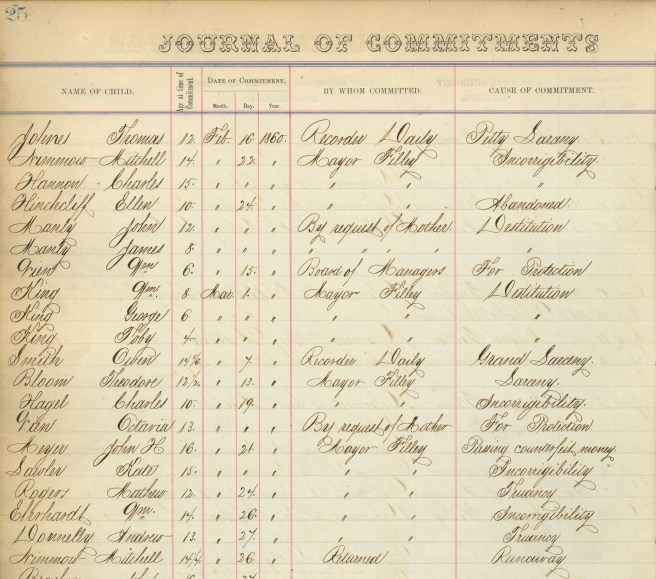 25
JOURNAL OF COMMITMENTS
NAME OF CHILD. Age at time of Commitment. DATE OF COMMITMENT. Month. Day. Year. BY WHOM COMMITTED. CAUSE OF COMMITMENT.
Johnes Thomas 12. Feb. 16 1860. Recorder Daily Petty Larceny
Nimmow Mitchell 14. " 22. " Mayor Filley Incorrigibility
Hannon Charles 15. " " " " " "
Hinchcliff Ellen 10. " 24. " " " Abandoned.
Manly John 12. " " " By request of Mother. Destitution
Manly James 8. " " " " " " "
Green Wm. 6. " 15. " Board of Managers For Protection
King Wm. 8 Mar. 1. " Mayor Filley Destitution
King George 6. " " " " " "
King Toby 4. " " " " " "
Smith Owen " 7. " Recorder Daily Grand Larceny.
Bloom Theodore 12/2. " 13. " Mayor Filley Larceny.
Hagel Charles 10. " 19. " " " Incorrigibility.
Octavia 13. " " " By request of Mother For Protection
Meyer John H 16. " 21. " Mayor Filley Passing counterfeit money.
Lawler Kate 15. " " " " " Incorrigibility
Rogers Mathew 12. " 24. " " " Truancy
Ehrhardt Wm. 14. " 26. " " " Incorrigibility
Donnelly Andrew 13. " 27. " " " Truancy
Nimmow Mitchell 14/4. " 26 " Returned Runaway